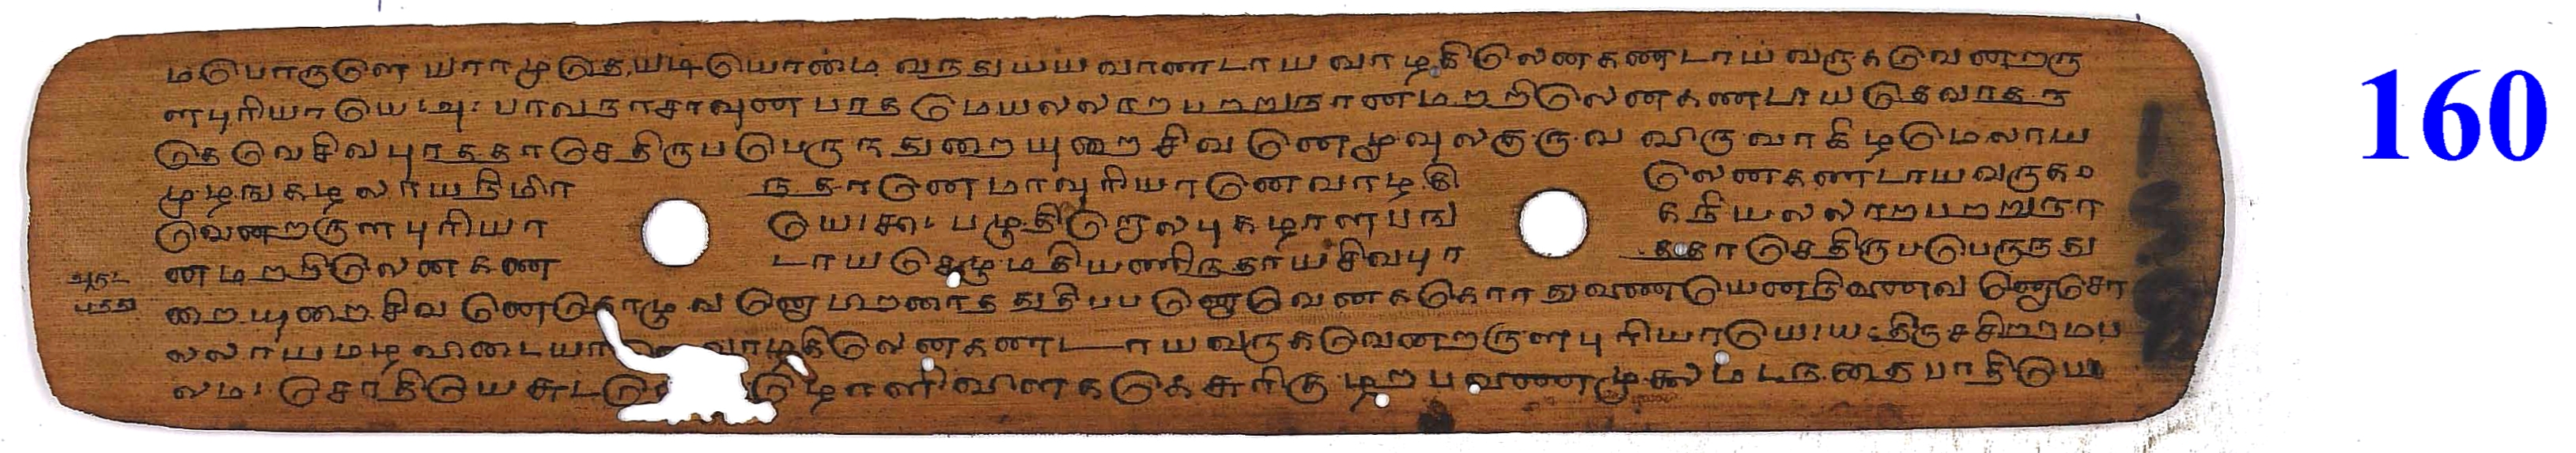 160
மபொருளே யாரமுதே யடியொமை வநதுயய வாணடாய வாழகிலென கணடாய வருகவெனறரு
ளபுரியாயெ ॥அ॥ பாவநாசாவுன பாதமெயலலாற பறறுநானமறறிலென கணடாயதெவரத
தெவெ சிவபுரததரசெ திருபபெருநதுறையுறை சிவனெ மூவுலகுருவ விருவரகிழமெலாய
முழஙகழலாயநிமிர நதானெ மாவுரியானெ வாழகி லென கணடாய வருக
வெனறருளபுரியா யெ ॥கூ॥ பழுதிறொலபுகழாளபங கநியலலாறபறறுநா
னமறறிலென கண டாயசெழுமதியணிநதாயசிவபுர ததரசெதிருபபெருநது
அருட பதது
றையுறை சிவனெ தொழுவனொ பிறரைத துதிபபனொ வெனககொர துணையென நினைவனொசொ
லலாய மழவிடையா வாழகிலென கணடாய வருகவெனறருளபுரியாயெ ॥ய॥ திருசசிறறமப
லம॥ சொதியெ சுட ழொளிவிளககெ சுரிகுழறபணைமுலைமடநதைபாதியெ